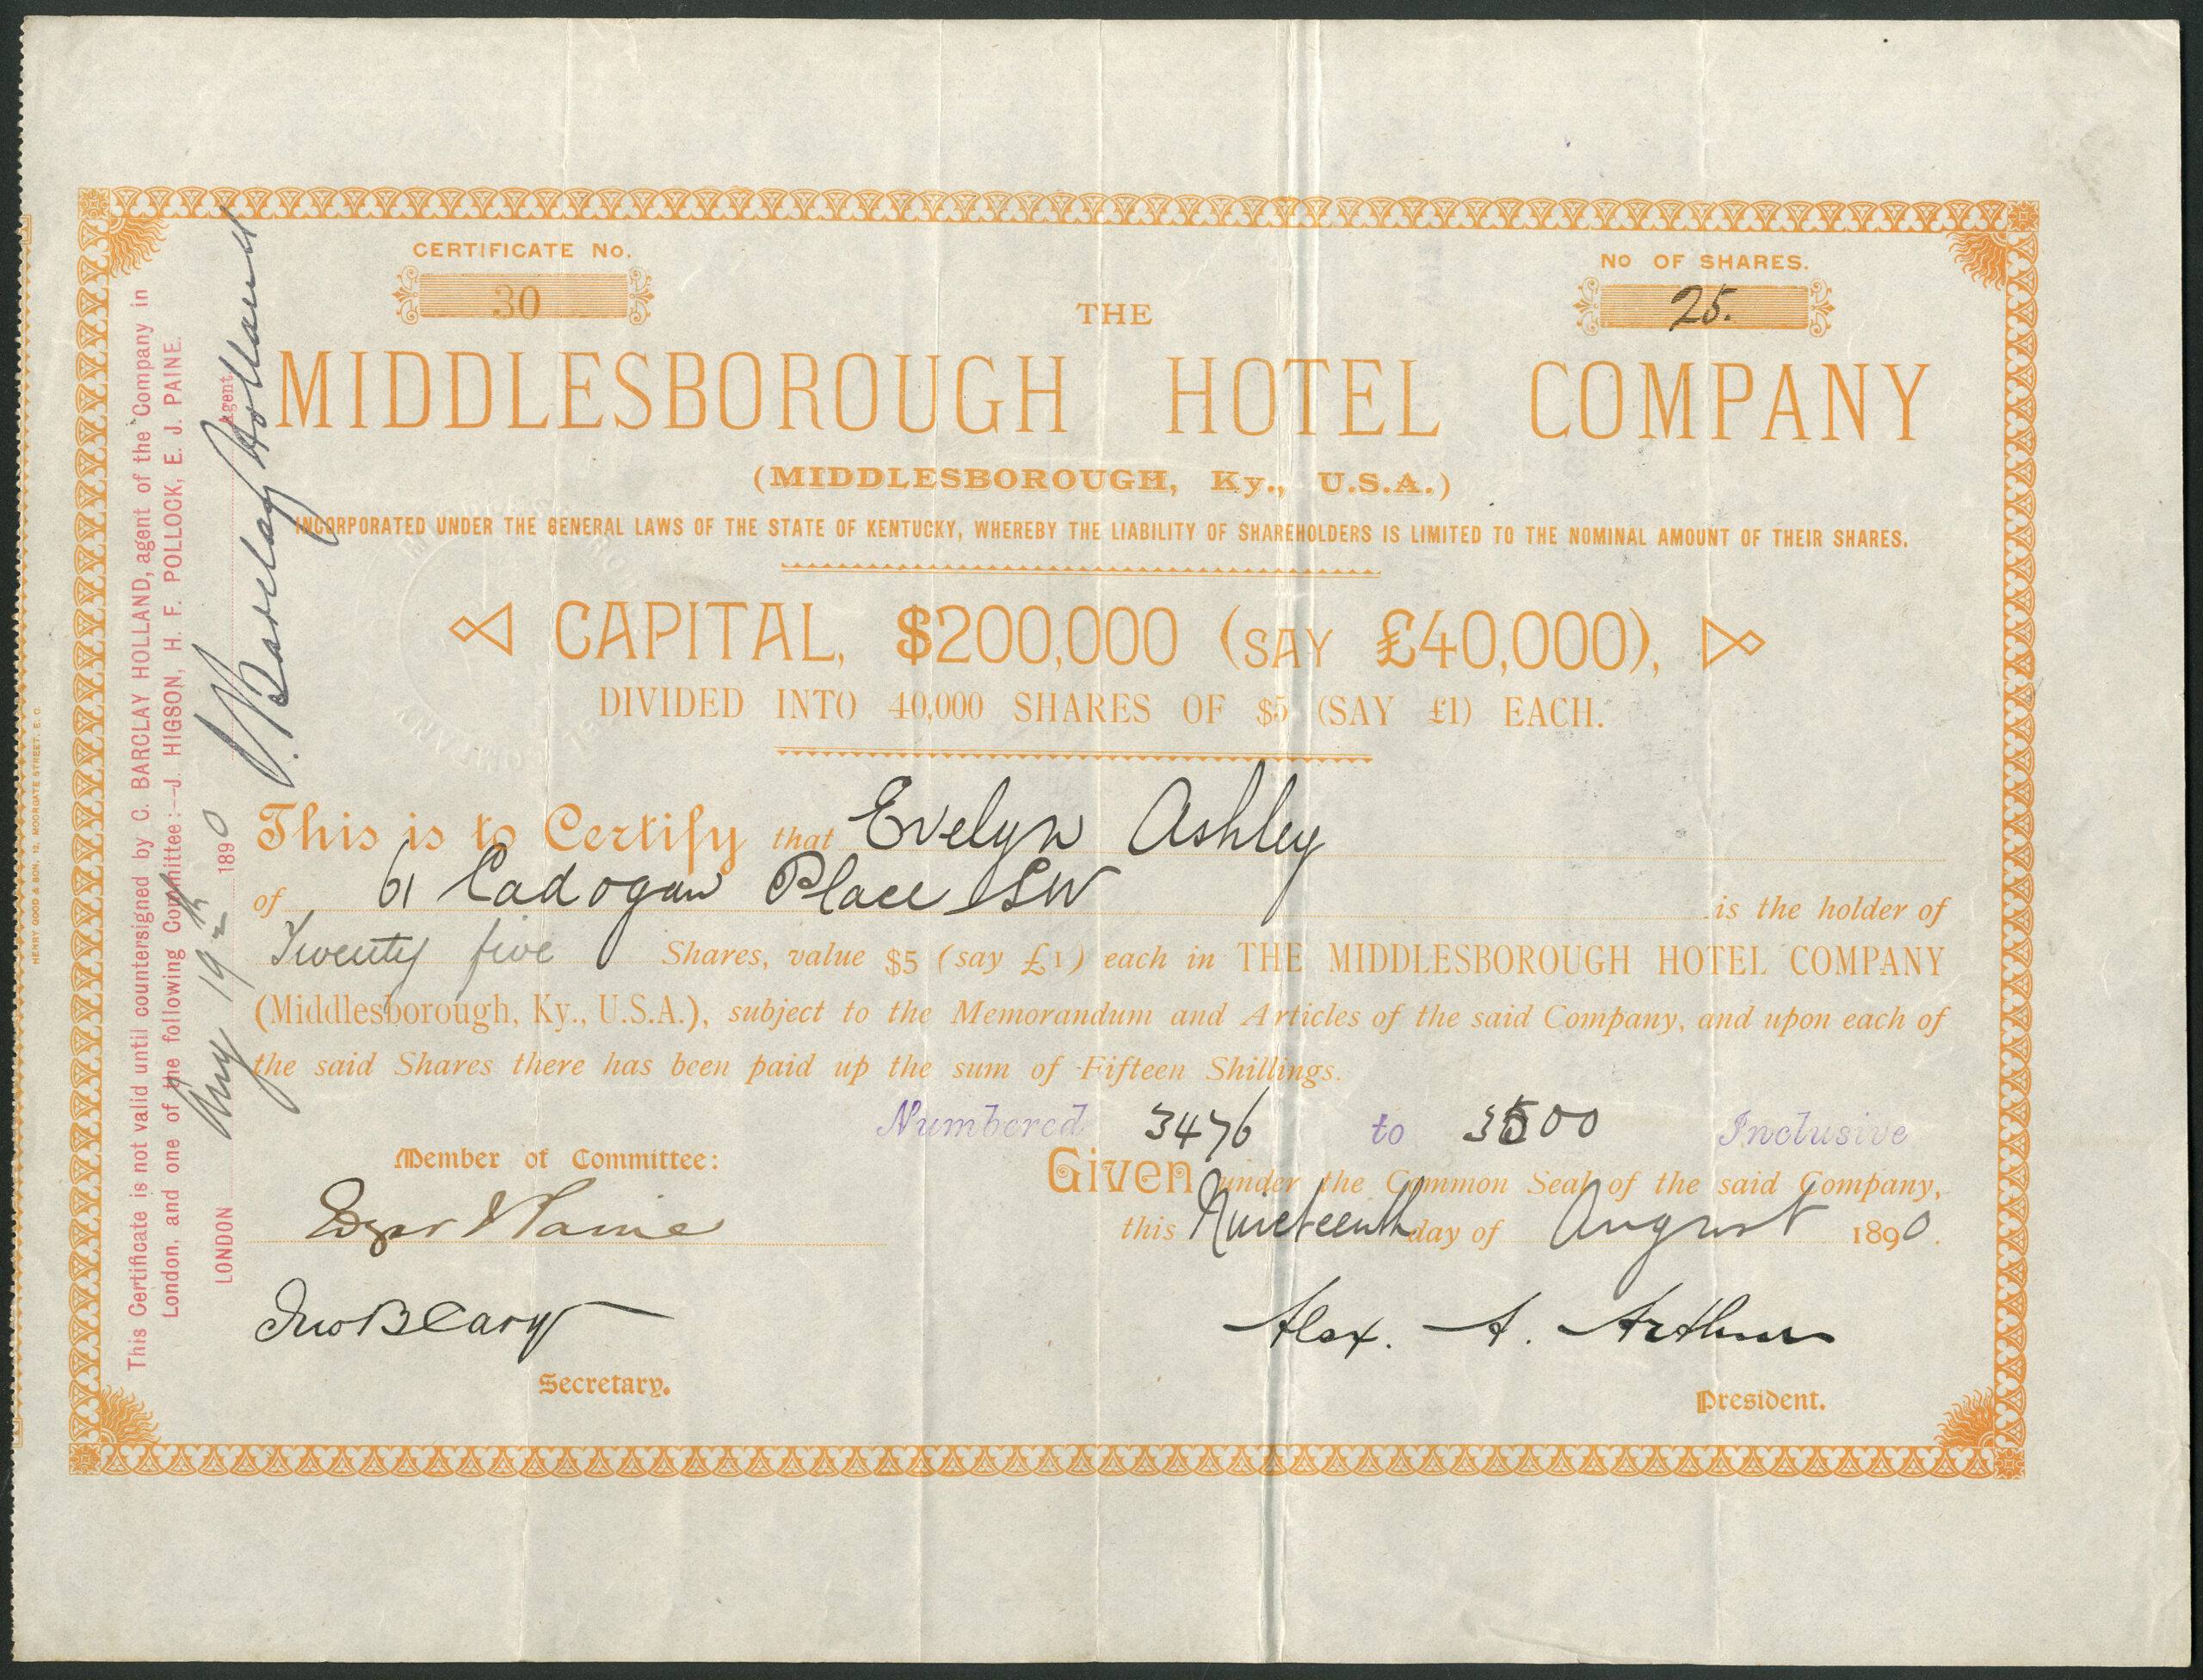 CERTIFICATE No.
30
No OF SHARES.
25.
THE
MIDDLESBOROUGH HOTEL COMPANY
(MIDDLESBOROUGH, Ky., U.S.A.)
INCORPORATED UNDER THE GENERAL LAWS OF THE STATE OF KENTUCKY, WHEREBY THE LIABILITY OF SHAREHOLDERS IS LIMITED TO THE NOMINAL AMOUNT OF THEIR SHARES.
CAPITAL, $200,000 (SAY £40,000),
DIVIDED INTO 40,000 SHARES OF $5 (SAY £1) EACH.
This is to Certify that Evelyn Ashley
of 61 Cadogan Place SW is the holder of
Twenty five Shares, value $5 (say £1) each in THE MIDDLESBOROUGH HOTEL COMPANY
(Middlesborough, Ky., U.S.A.), subject to the Memorandum and Articles of the said Company, and upon each of
the said Shares there has been paid up the sum of Fifteen Shillings.
Numbered 3476 to 3500 Inclusive
Member of Committee:
Given under the Common Seal of the said Company,
this Nineteenth day of August 1890.
Edgar J Paine
Jno B Cary
Secretary.
Alex. A. Arthur
President.
This Certificate is not valid until countersigned by C. BARCLAY HOLLAND, agent of the Company in
London, and one of the following Committee:—J. HIGSON, H. F. POLLOCK, E. J. PAINE.
LONDON Aug 19th 1890 C. Barclay Holland Agent.
HENRY GOOD & SON, 12, MOORGATE STREET, E. C.